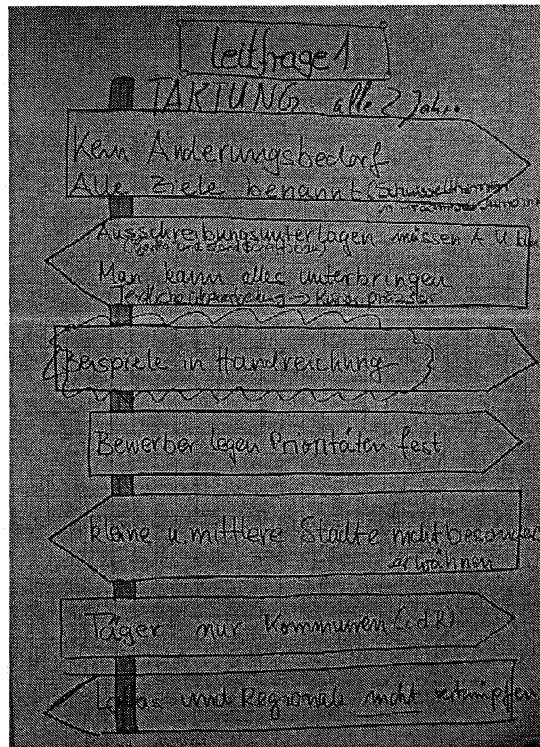 Leitfrage 1
TAKTUNG alle 2 Jahre
Kein Änderungsbedorf
Alle Ziele benannt
Ausschreibungsunterlagen müssen
Man kann alles unterbringen
Beispiele in Handreichung
Bewerber legen Prioritäten fest
kleine u. mittlere Städte nicht besonders
erwähnen
Täger nur Kommunen (i.d.R)
und Regionale nicht verknüpfen